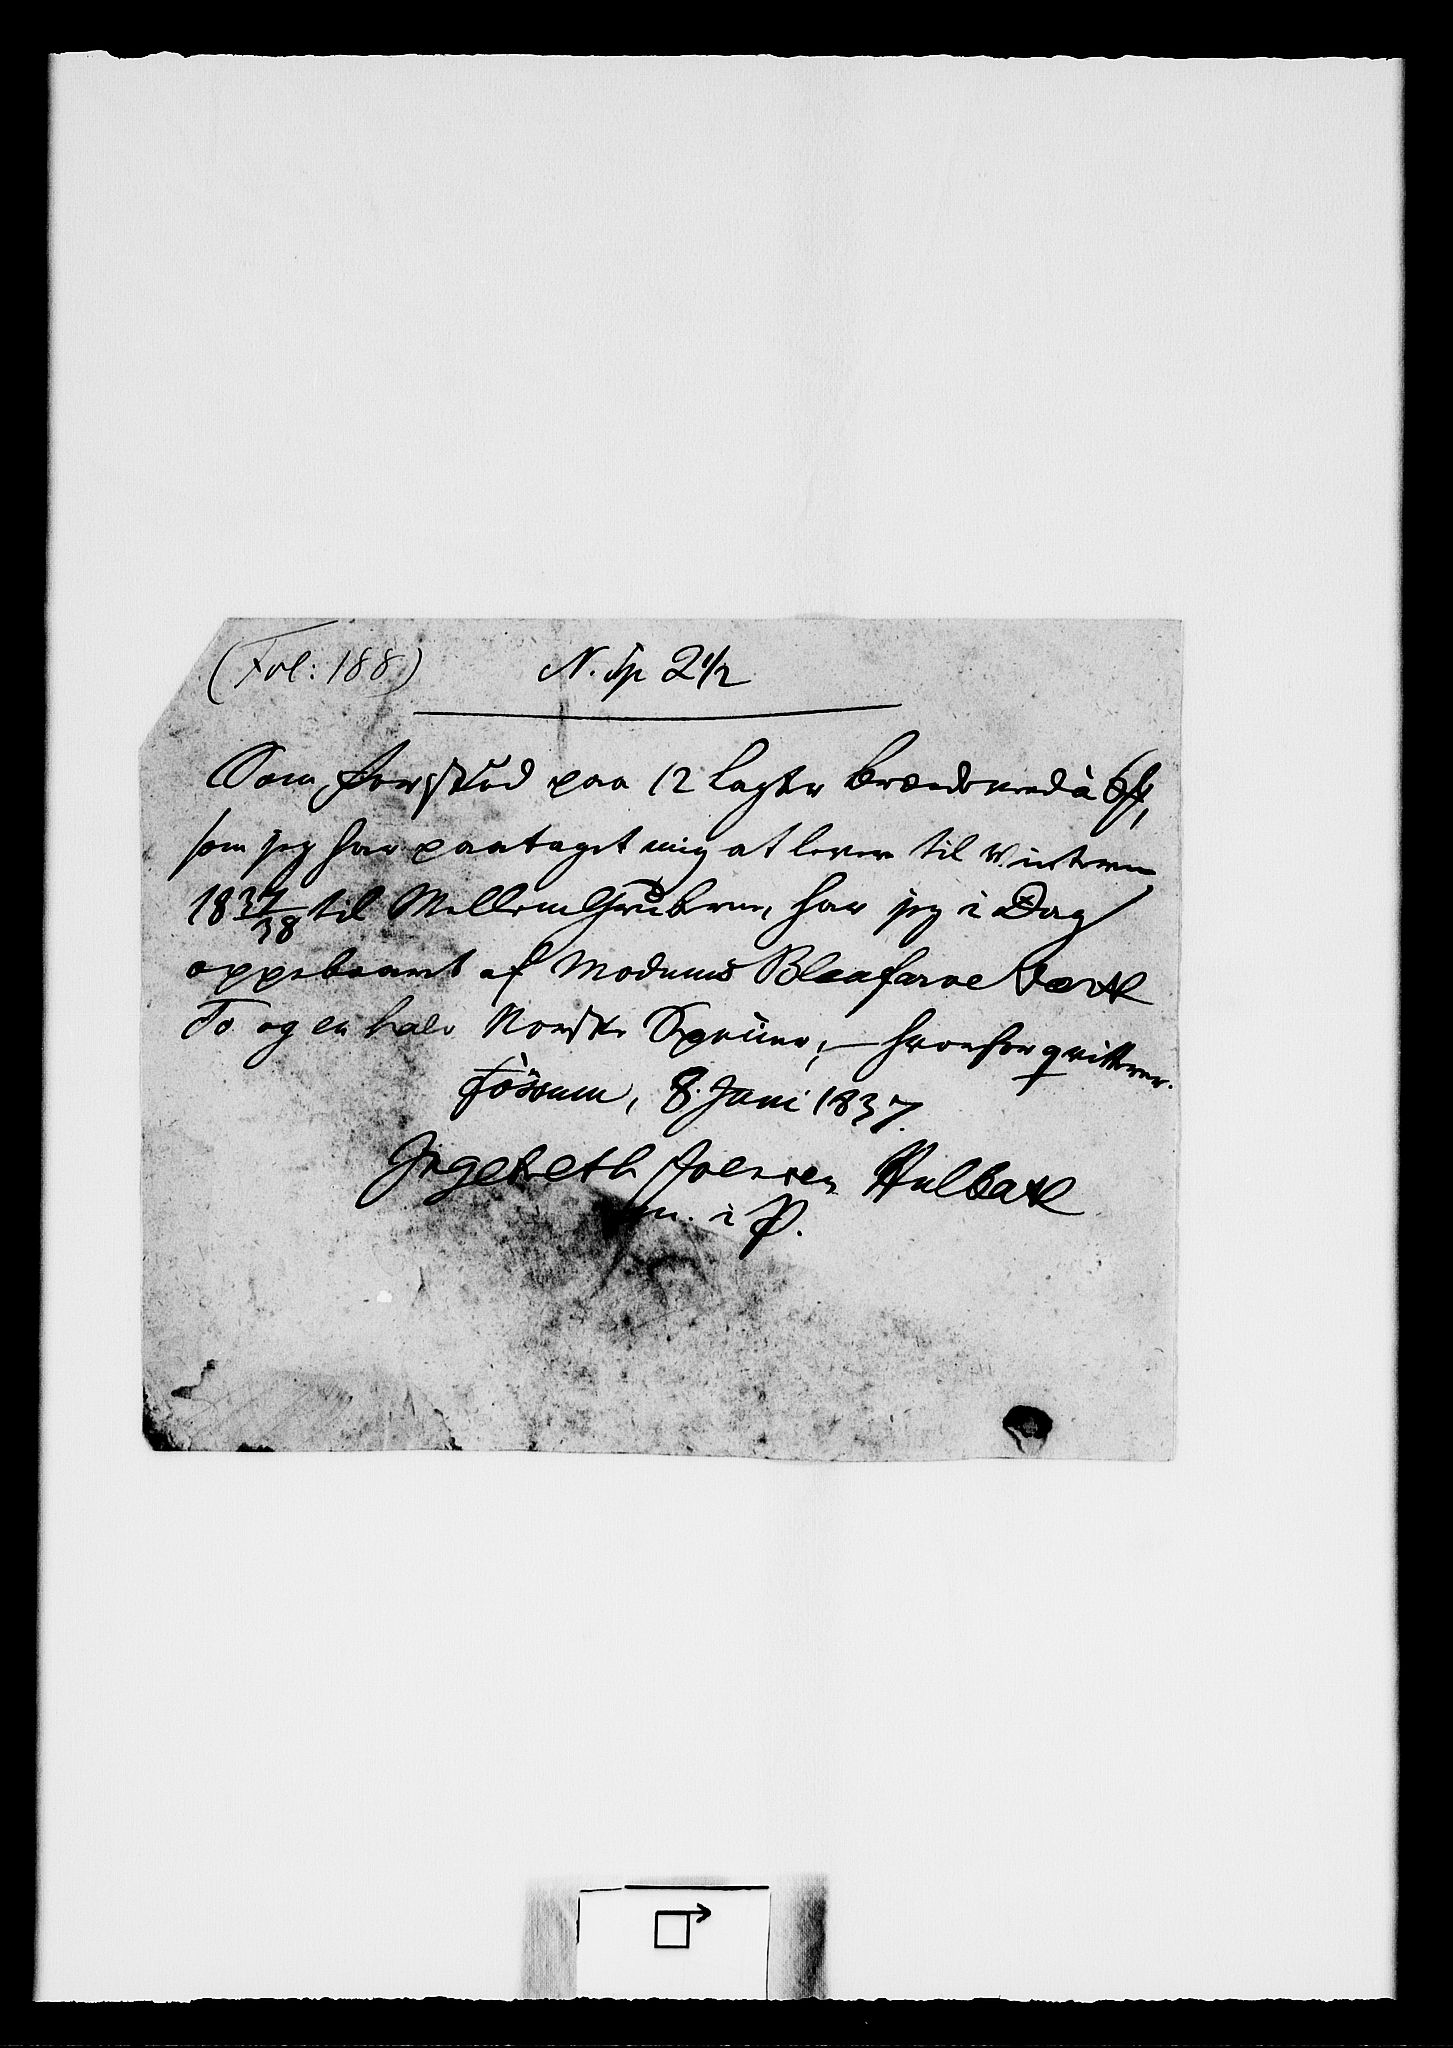 (Fol: 188) N. Sp 2 1/2
Som Forskud paa 12 Lagter Brændeved à
som jeg har paataget mig at levere til Vinteren
1837/38 til Mellem Gruberne, har jeg i Dag
oppebaaret af Modums Blaafarve Værk
To og en halv Norske Species, — hvorfor qvitterer.
Fossum, 8. Juni 1837.
Ingebreth Joensen Kulbak
m. i P.